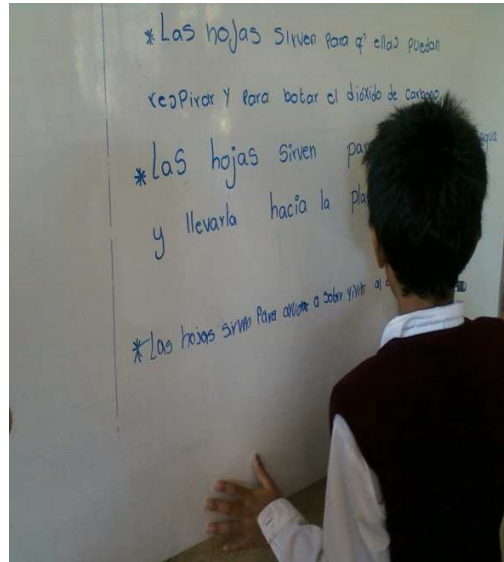 *Las hojas sirven para q' ellas puedan
respirar y para botar el dióxido de carbono
*las hojas sirven agua
y llevarla hacia la
*las hojas sirven para a sobre vivir al